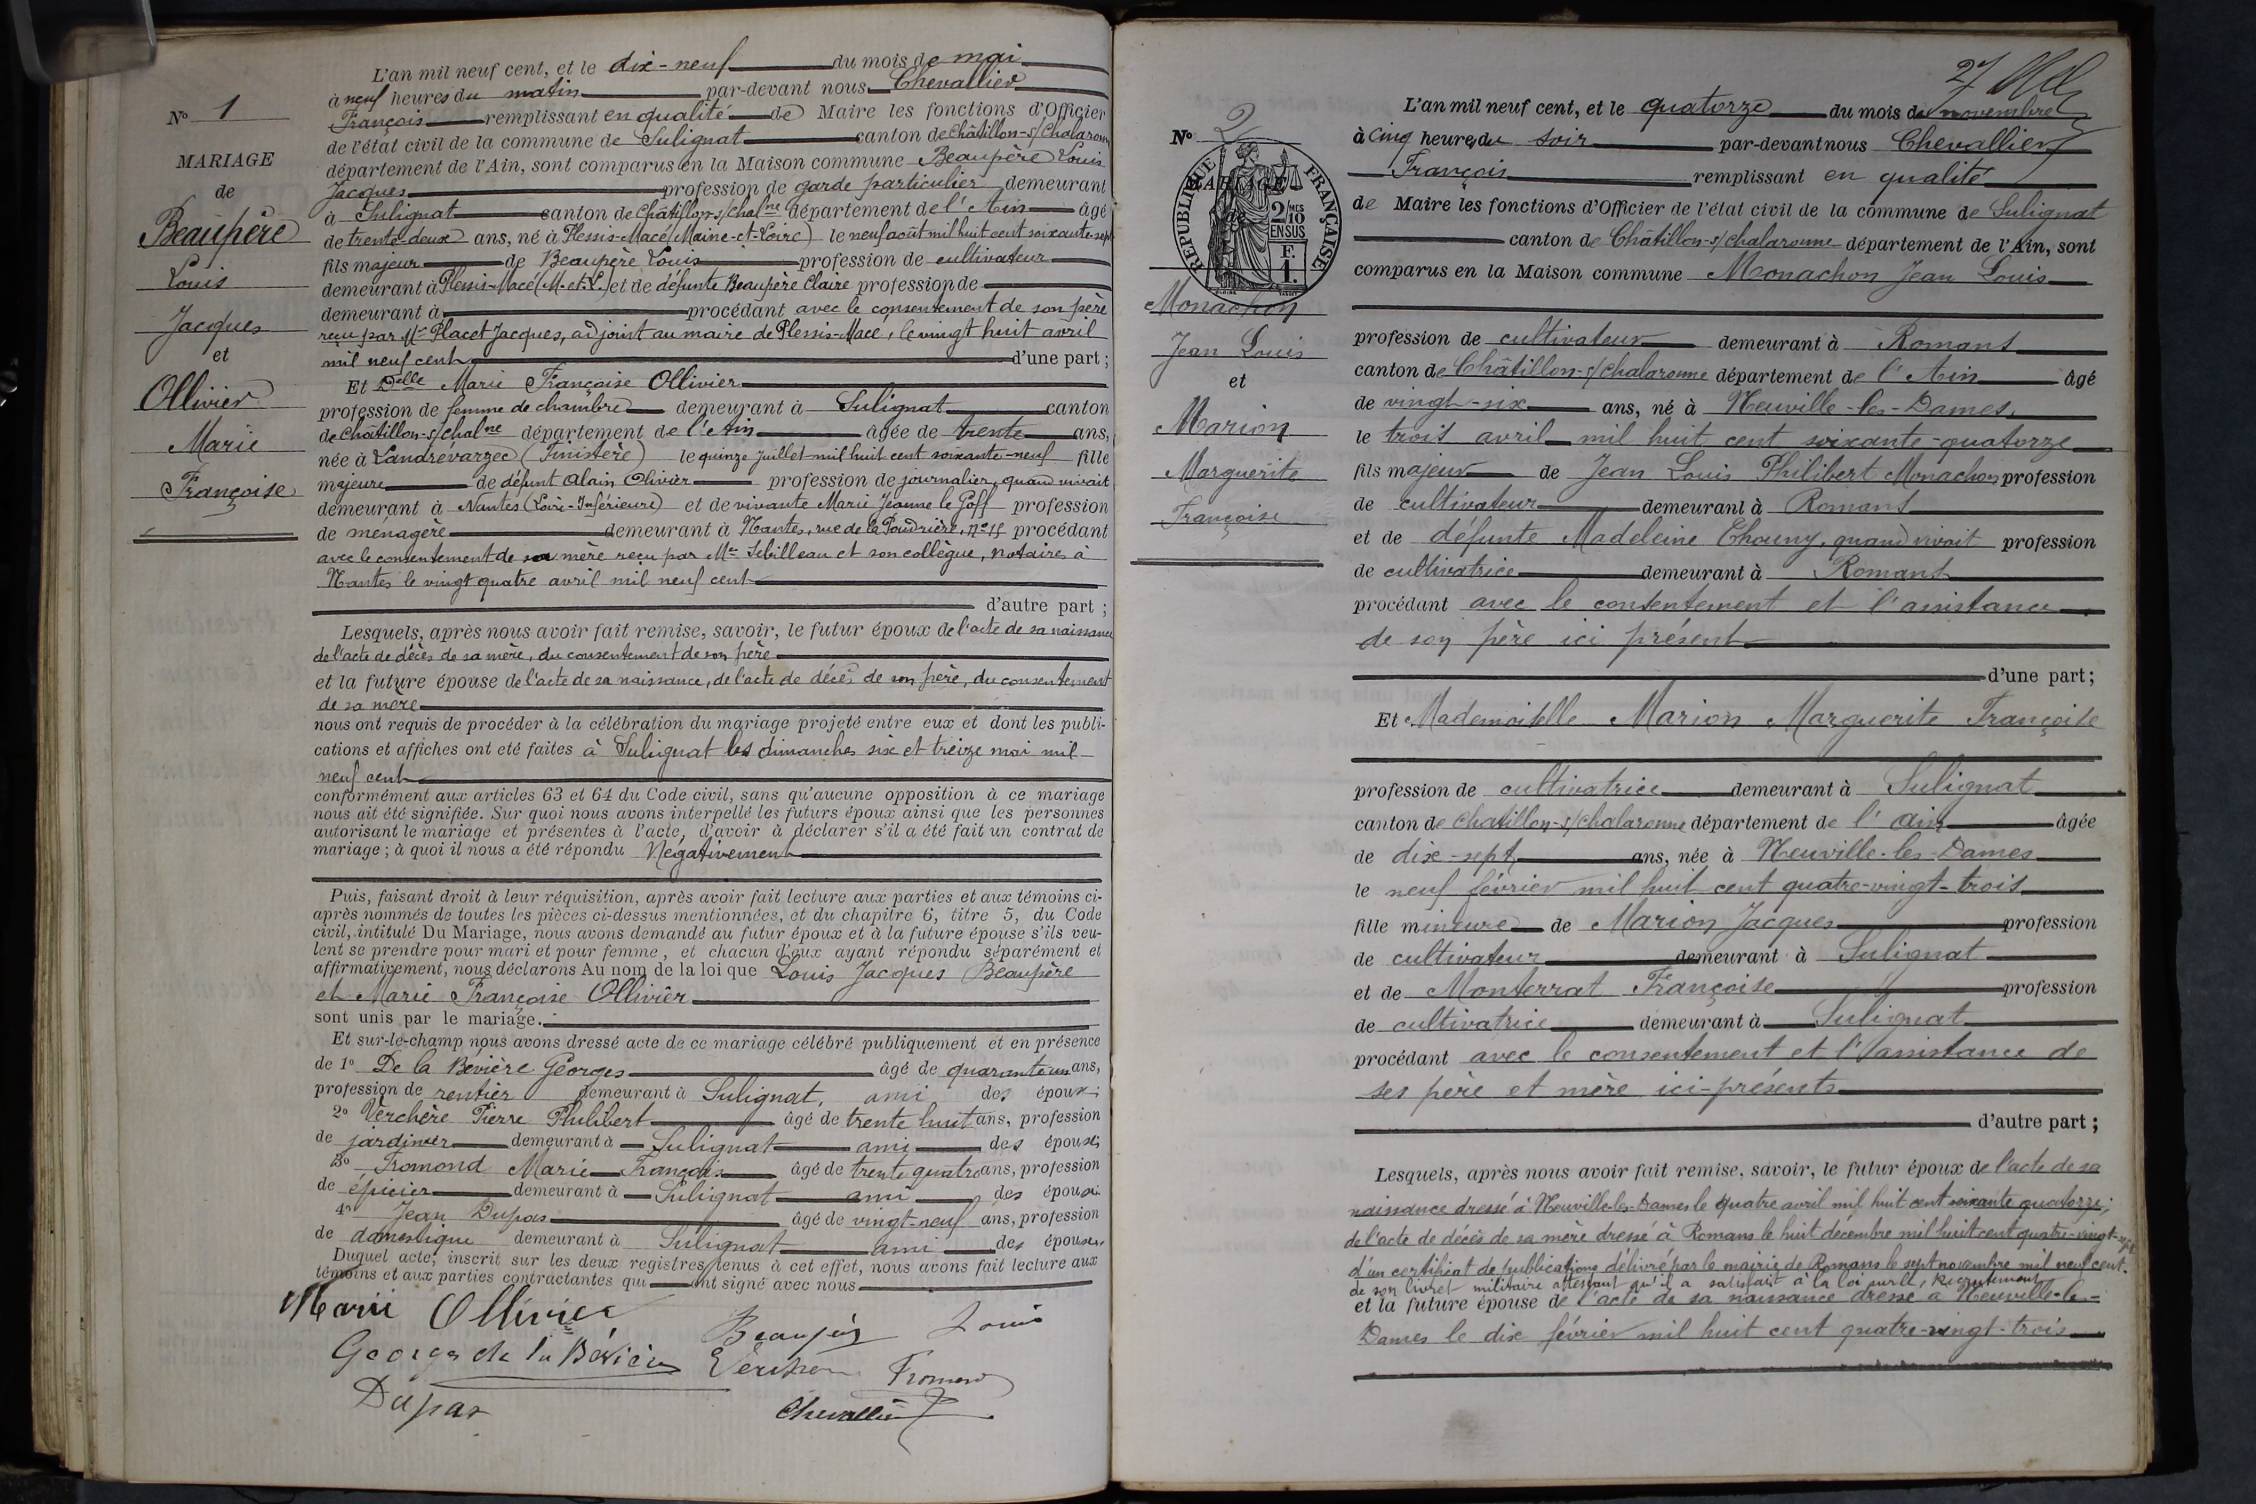 N° 1
MARIAGE
de
Beaupère
Louis
Jacques
et
Ollivier
Marie
Françoise
L'an mil neuf cent, et le dix-neuf du mois de mai
à neuf heures du matin par-devant nous Chevallier
François remplissant en qualité de Maire les fonctions d'Officier
de l'état civil de la commune de Sulignat canton de Châtillon-s/Chalaronne
département de l'Ain, sont comparus en la Maison commune Beaupère Louis
Jacques profession de garde particulier demeurant
à Sulignat canton de Châtillon-s/Chalne département de l'Ain âgé
de trente-deux ans, né à Plessis-Macé (Maine-et-Loire) le neuf août mil huit cent soixante-sept
fils majeur de Beaupère Louis profession de cultivateur
demeurant à Plessis-Macé (M.-et-L.) et de défunte Beaupère Claire profession de
demeurant à procédant avec le consentement de son père
reçu par Mr Placet Jacques, adjoint au maire de Plessis-Macé, le vingt huit avril
mil neuf cent d'une part ;
Et Delle Marie Françoise Ollivier
profession de femme de chambre demeurant à Sulignat canton
de Châtillon-s/Chalne département de l'Ain âgée de trente ans,
née à Landrevarzec (Finistère) le quinze juillet mil huit cent soixante-neuf fille
majeure de défunt Alain Olivier profession de journalier, quand vivait
demeurant à Nantes (Loire-Inférieure) et de vivante Marie Jeanne le Goff profession
de ménagère demeurant à Nantes, rue de la Poudrière, n° procédant
avec le consentement de sa mère reçu par Me Sebilleau et son collègue, notaires à
Nantes le vingt quatre avril mil neuf cent
d'autre part ;
Lesquels, après nous avoir fait remise, savoir, le futur époux de l'acte de sa naissance
de l'acte de décès de sa mère, du consentement de son père
et la future épouse de l'acte de sa naissance, de l'acte de décès de son père, du consentement
de sa mère
nous ont requis de procéder à la célébration du mariage projeté entre eux et dont les publi-
cations et affiches ont eté faites à Sulignat les dimanches six et treize mai mil
neuf cent
conformément aux articles 63 et 64 du Code civil, sans qu'aucune opposition à ce mariage
nous ait été signifiée. Sur quoi nous avons interpellé les futurs époux ainsi que les personnes
autorisant le mariage et présentes à l'acte, d'avoir à déclarer s'il a été fait un contrat de
mariage ; à quoi il nous a été répondu Négativement
Puis, faisant droit à leur réquisition, après avoir fait lecture aux parties et aux témoins ci-
après nommés de toutes les pièces ci-dessus mentionnées, et du chapitre 6, titre 5, du Code
civil, intitulé Du Mariage, nous avons demandé au futur époux et à la future épouse s'ils veu-
lent se prendre pour mari et pour femme, et chacun d'eux ayant répondu séparément et
affirmativement, nous déclarons Au nom de la loi que Louis Jacques Beaupère
et Marie Françoise Ollivier
sont unis par le mariage.
Et sur-le-champ nous avons dressé acte de ce mariage célébré publiquement et en présence
de 1° De la Bévière Georges âgé de quarante un ans,
profession de rentier demeurant à Sulignat, ami des époux ;
2° Verchère Pierre Philibert âgé de trente huit ans, profession
de jardinier demeurant à Sulignat ami des époux ;
3° Fromond Marie François âgé de trente quatre ans, profession
de épicier demeurant à Sulignat ami des époux
4° Jean Dupas âgé de vingt-neuf ans, profession
de domestique demeurant à Sulignat ami des époux
Duquel acte, inscrit sur les deux registres tenus à cet effet, nous avons fait lecture aux
témoins et aux parties contractantes qui ont signé avec nous
Marie Ollivier
Beaupère Louis
Georges de la Bévière Verchère Fromond
Dupas Chevallier
27
N° 2
MARIAGE
de
RÉPUBLIQUE FRANÇAISE
2/10MES
EN SUS
F.
1.
Monachon
Jean Louis
et
Marion
Marguerite
Françoise
L'an mil neuf cent, et le quatorze du mois de novembre
à cinq heures du soir par-devant nous Chevallier
François remplissant en qualité
de Maire les fonctions d'Officier de l'état civil de la commune de Sulignat
canton de Châtillon-s/Chalaronne département de l'Ain, sont
comparus en la Maison commune Monachon Jean Louis
profession de cultivateur demeurant à Romans
canton de Châtillon-s/Chalaronne département de l'Ain âgé
de vingt-six ans, né à Neuville-les-Dames,
le trois avril mil huit cent soixante-quatorze
fils majeur de Jean Louis Philibert Monachon profession
de cultivateur demeurant à Romans
et de défunte Madeleine Thouny, quand vivait profession
de cultivatrice demeurant à Romans
procédant avec le consentement et l'assistance
de son père ici présent
d'une part;
Et Mademoiselle Marion Marguerite Françoise
profession de cultivatrice demeurant à Sulignat
canton de Chatillon-s/Chalaronne département de l'Ain âgée
de dix-sept ans, née à Neuville-les-Dames
le neuf février mil huit cent quatre-vingt-trois
fille mineure de Marion Jacques profession
de cultivateur demeurant à Sulignat
et de Monterrat Françoise profession
de cultivatrice demeurant à Sulignat
procédant avec le consentement et l'assistance de
ses père et mère ici-présents
d'autre part ;
Lesquels, après nous avoir fait remise, savoir, le futur époux de l'acte de sa
naissance dressé à Neuville-les-Dames le quatre avril mil huit cent soixante quatorze;
de l'acte de décès de sa mère dressé à Romans le huit décembre mil huit cent quatre-vingt-sept
d'un certificat de publications délivré par le mairie de Romans le sept novembre mil neuf cent.
de son livret militaire attestant qu'il a satisfait à la loi sur le recrutement
et la future épouse de l'acte de sa naissance dressé à Neuville-les-
Dames le dix février mil huit cent quatre-vingt-trois